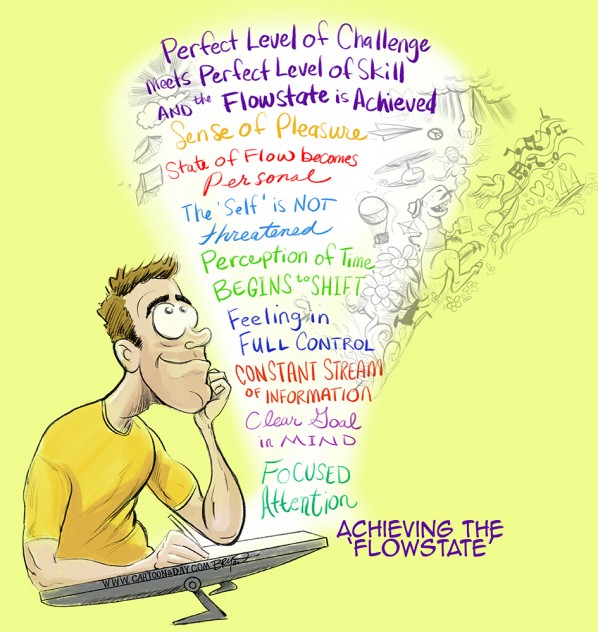 Perfect Level of Challenge
Meets Perfect Level of Skill
AND the Flowstate is Achieved
Sense of Pleasure
State of Flow becomes
Personal
The 'Self' is NOT
threatened
Perception of Time
BEGINS to SHIFT
Feeling in
FULL CONTROL
CONSTANT STREAM
OF INFORMATION
Clear Goal
in MIND
FOCUSED
Attention
ACHIEVING THE
'FLOWSTATE'
WWW.CARTOONADAY.COM